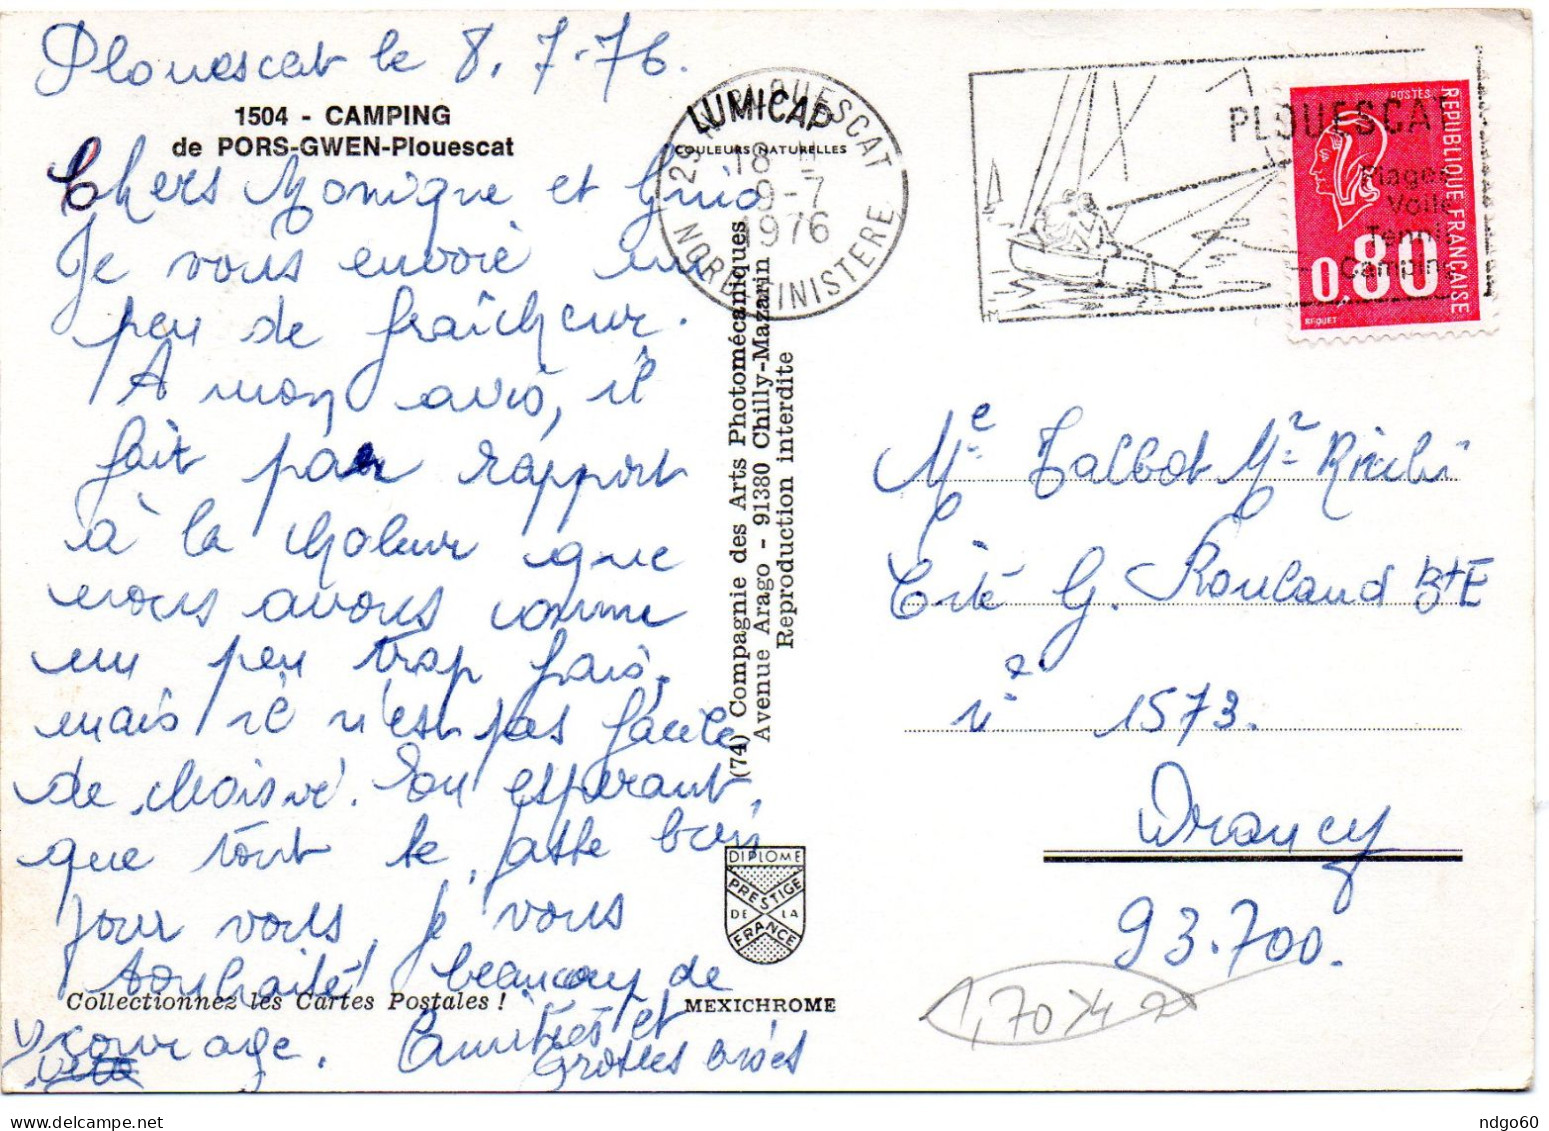 Plouescat le 8.7-76.
1504 - CAMPING
de PORS-GWEN-Plouescat
Chers Monique et Guio
Je vous envoié un
peu de fraîcheur.
A mon avis, il
fait par rapport
à la chaleur que
nous avons comme
un peu trop frais,
mais il n'est pas facile
de choisir. En esperant,
que tout le passe bien
pour vous, je vous
souhaite beaucoup de
courage. Amitiés et
Grosses Bises
Collectionnez les Cartes Postales !
LUMICAP
COULEURS NATURELLES
29 N PLOUESCAT
18 H
9-7
1976
NORD FINISTERE
(74) Compagnie des Arts Photomécaniques
Avenue Arago - 91380 Chilly-Mazarin
Reproduction interdite
DIPLOME
PRESTIGE
DE LA
FRANCE
MEXICHROME
PLOUESCAT
Plages
Voile
Tennis
Camping
POSTES
REPUBLIQUE FRANÇAISE
0,80
BEQUET
Me Talbot Mr Richi
Cité G. Rouland Bt E
n° 1573.
Drancy
93.700.
1,70
ndgo60